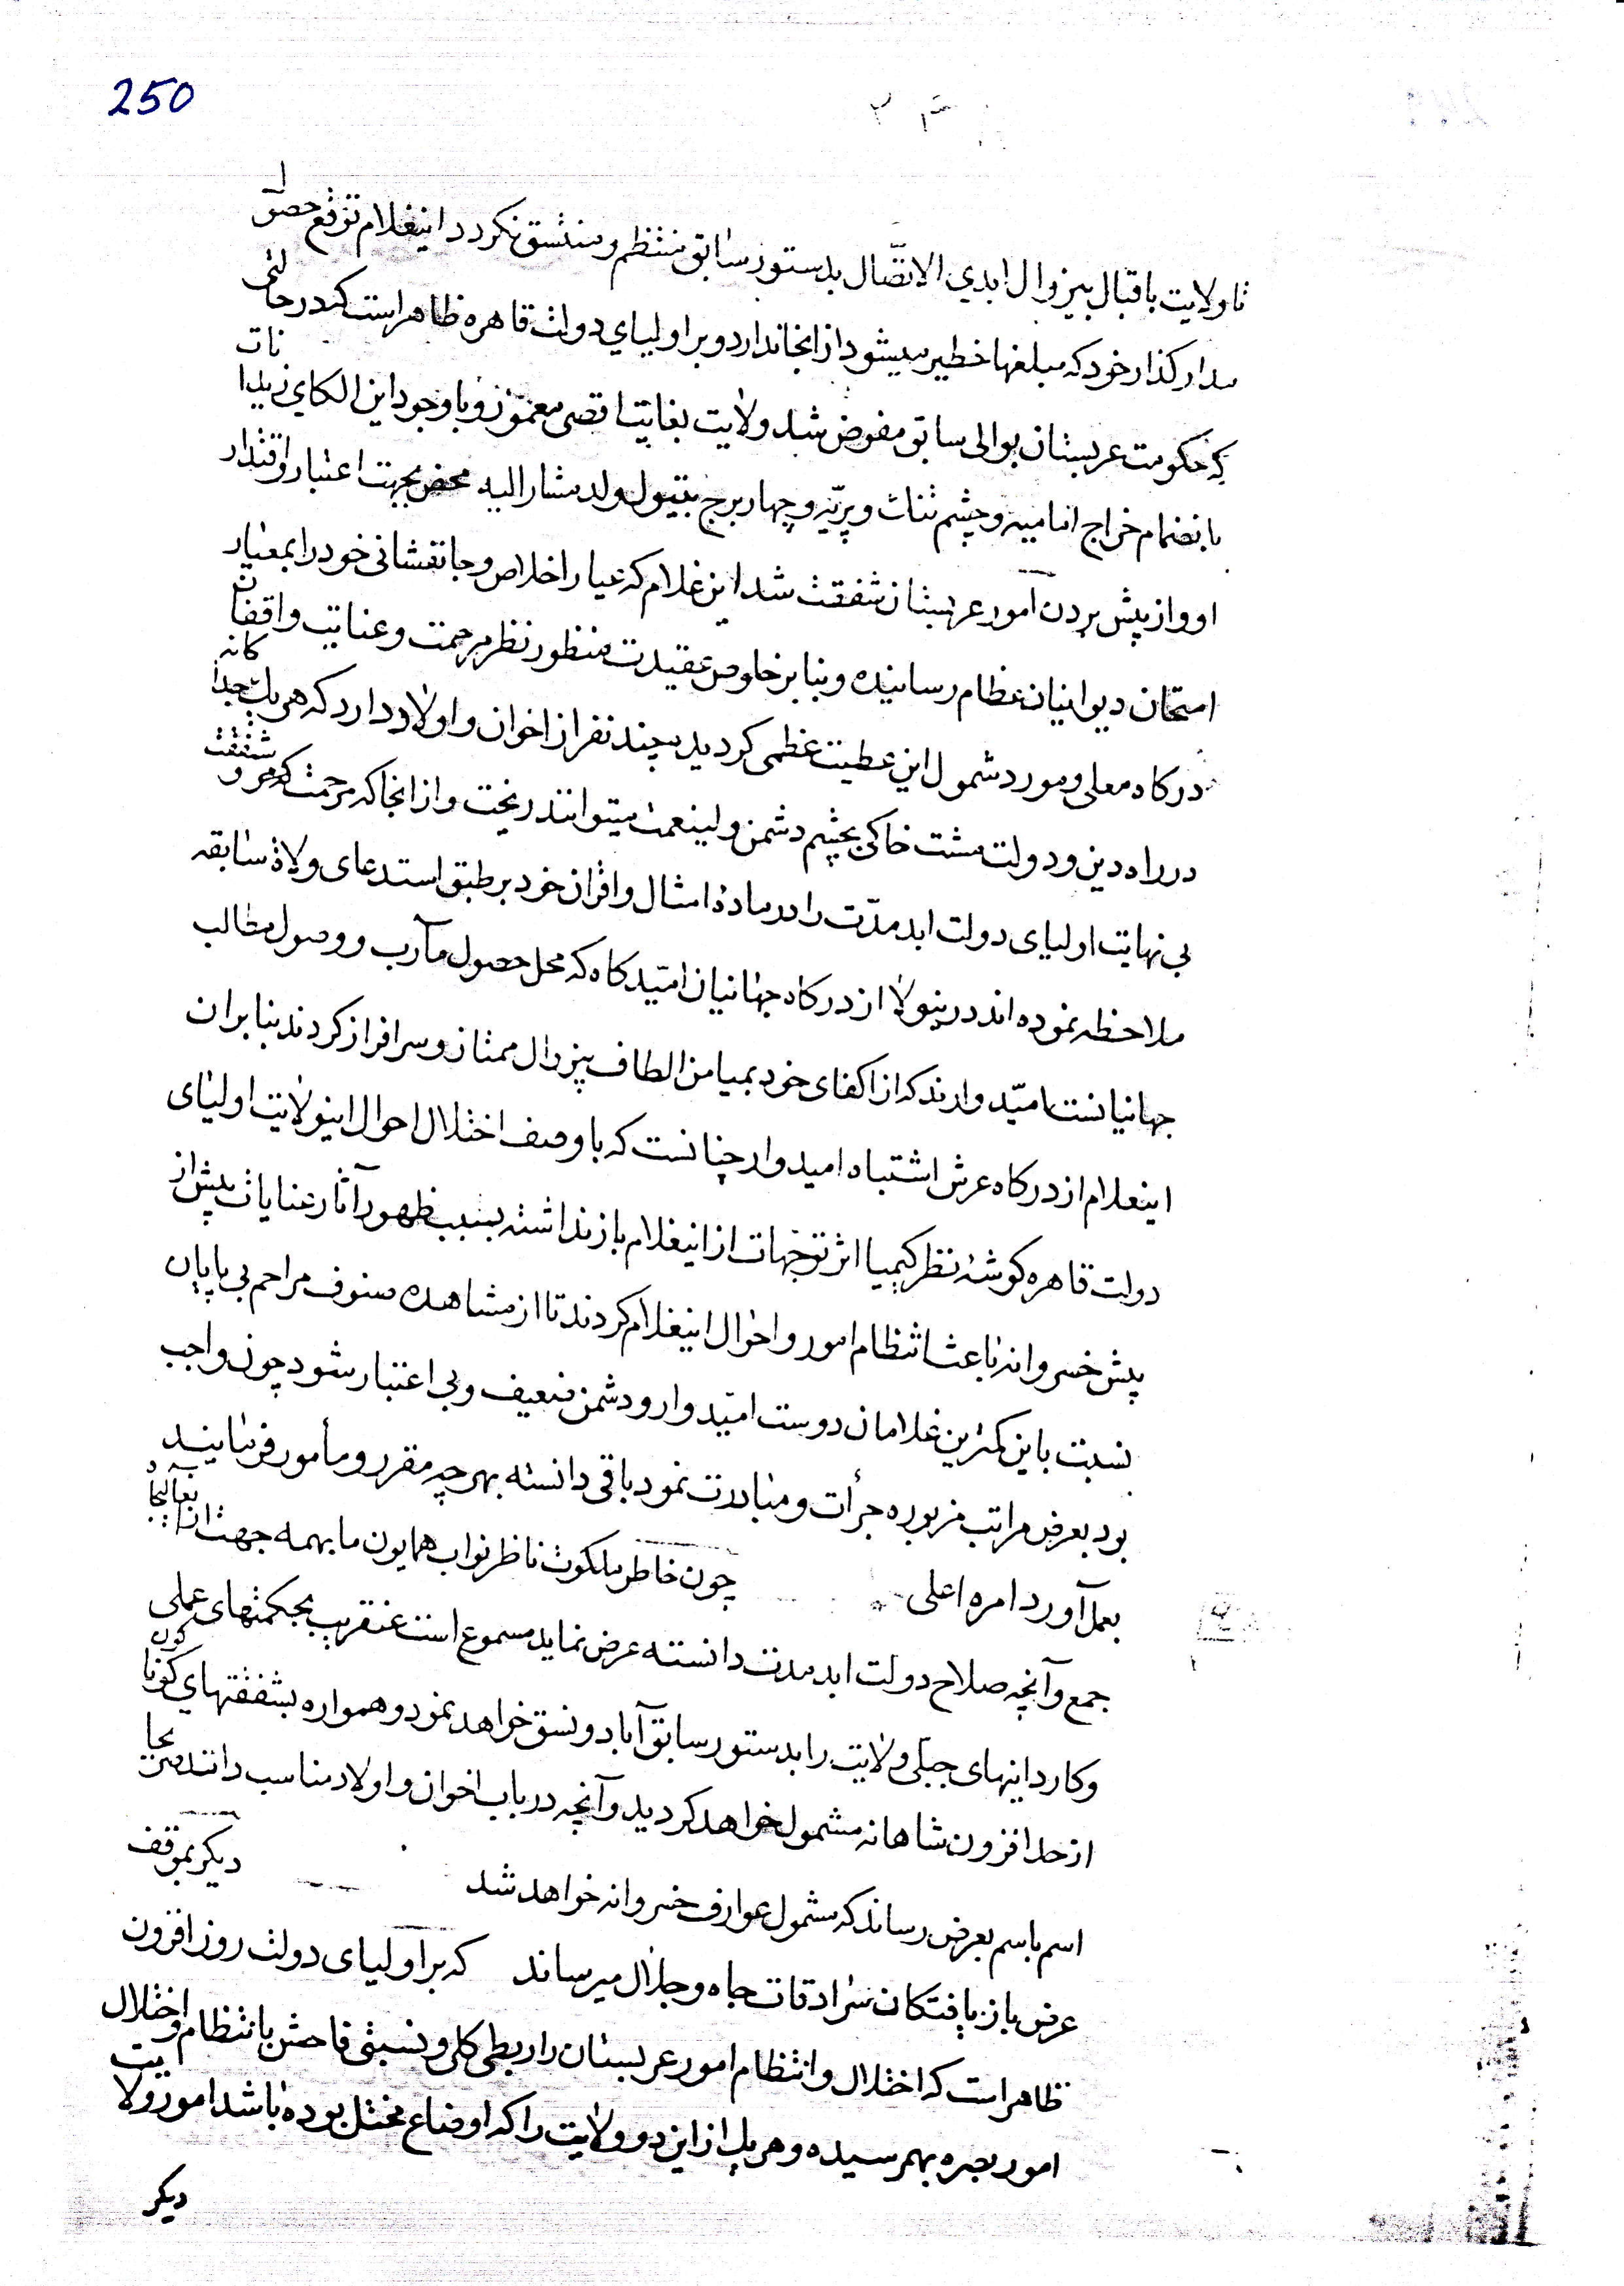 250
تا ولایت باقبال بیزوال ابدي الاتّصال بدستور سابق منتظم و منتسق نکردد اینغلام توقع حصول
مدار کذار خود که مبلغها خطیر میشود از انجا ندارد و بر اولیاي دولت قاهره ظاهر است که در حالتی
که حکومت عربستان بوالی سابق مفوض شد ولایت بغایت اقصی معمور و با وجود این الکاي زیدانات
بانضمام خراج امامیه و چشم ثنات و پریّه و چهار برج بتیول ولد مشار الیه محض بجهت اعتبار و اقتدار
او و از پیش بردن امور عربستان شفقت شد این غلام که عیار اخلاص و جانفشانی خود را بمعیار
امتحان دیوانیان عظام رسانیده و بنابر خلوص عقیدت منظور نظر مرحمت و عنایت واقفان
درکاه معلی و مورد شمول این عطیت عظمی کردید چند نفر از اخوان و اولاد دارد که هر یک جداکانه
در راه دین و دولت مشت خاکی بچشم دشمن ولینعمت میتوانند ریخت و از انجا که مرحمت و شفقت
بی نهایت اولیای دولت ابد مدّت را در مادۀ امثال و اقران خود بر طبق استدعای ولاة سابقه
ملاحظه نموده اند درینولا از درکاه جهانیان امّیدکاه که محل حصول مآرب و وصول مطالب
جهانیانست امّیدوارند که از اکفای خود بمیامن الطاف بیزوال ممتاز و سرافراز کردند بنا بران
اینغلام از درکاه عرش اشتباه امیدوار چنانست که با وصف اختلال احوال اینولایت اولیای
دولت قاهره کوشۀ نظر کیمیا اثر توجّهات از اینغلام باز نداشته بسبب ظهور آثار عنایات پیش از
پیش خسروانه باعث انتظام امور و احوال اینغلام کردند تا از مشاهده صنوف مراحم بی پایان
نسبت باین کمترین غلامان دوست امّیدوار و دشمن ضعیف و بی اعتبار شود چون واجب
بود بعرض مراتب مزبوره جرأت و مبادرت نمود باقی دانسته بهر چه مقرر و مأمور فرمایند
بعمل آورد امره اعلی چون خاطر ملکوت ناظر نواب همایون ما بهمه جهت از آنعالیجاه
جمع و آنچه صلاح دولت ابد مدت دانسته عرض نماید مسموع است عنقریب بحکمتهای عملی
و کاردانیهای جبلّی ولایت را بدستور سابق آباد و نسق خواهد نمود و همواره بشفقتهاي کوناکون
از حد افزون شاهانه مشمول خواهد کردید و آنچه در باب اخوان و اولاد مناسب داند صریحا
اسم باسم بعرض رساند که مشمول عوارف خسروانه خواهد شد دیکر بموقف
عرض بازیافتکان سرادقات جاه و جلال میرساند که بر اولیای دولت روز افزون
ظاهر است که اختلال و انتظام امور عربستان را ربطی کلی و نسبتی فاحش بانتظام و اختلال
امور بصره بهمرسیده و هر یک از این دو ولایت را که اوضاع مختل بوده باشد امور ولایت
دیکر